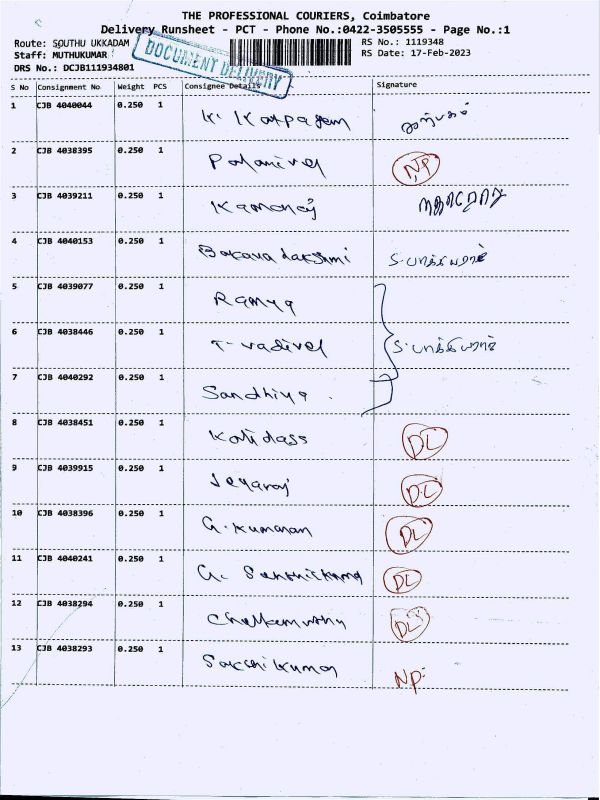 THE PROFESSIONAL COURIERS, Coimbatore
Delivery Runsheet - PCT - Phone No.:0422-3505555 - Page No.:1
Route: SOUTHU UKKADAM RS No.: 1119348
Staff: MUTHUKUMAR RS Date: 17-Feb-2023
DRS No.: DCJB111934801
DOCUMENT DELIVERY
S No Consignment No Weight PCS Consignee Details Signature
1 CJB 4040044 0.250 1 K. Karpagam கற்பகம்
2 CJB 4038395 0.250 1 Palanivel NP
3 CJB 4039211 0.250 1
4 CJB 4040153 0.250 1 S. பாக்கியராஜ்
5 CJB 4039077 0.250 1 Ramya
6 CJB 4038446 0.250 1 T. Vadivel S. பாக்கியராஜ்
7 CJB 4040292 0.250 1 Sandhiya .
8 CJB 4038451 0.250 1 Kalidass DL
9 CJB 4039915 0.250 1 Jeyaraj DL
10 CJB 4038396 0.250 1 G. Kumaran DL
11 CJB 4040241 0.250 1 G. DL
12 CJB 4038294 0.250 1 Chellamuthu DL
13 CJB 4038293 0.250 1 NP.